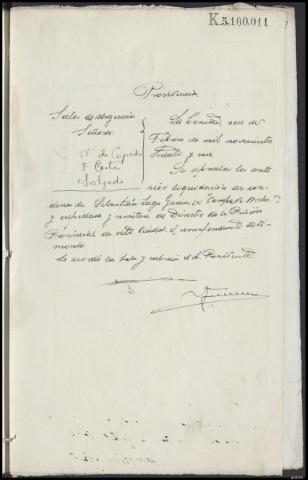 K.5.160.011
Providencia
Sala de urgencia
Señores
de Cepeda
F Costa
Salgado
La Coruña, seis de
Febrero de mil novecientos
treinta y seis.
Se aprueba la ante
rior liquidación de con
dena de Sebastián Lago
y expídase y remítase al Director de la Prisión
Provincial de esta ciudad el correspondiente testi
monio
Lo acordó la Sala y rubrica el Sr. Presidente.